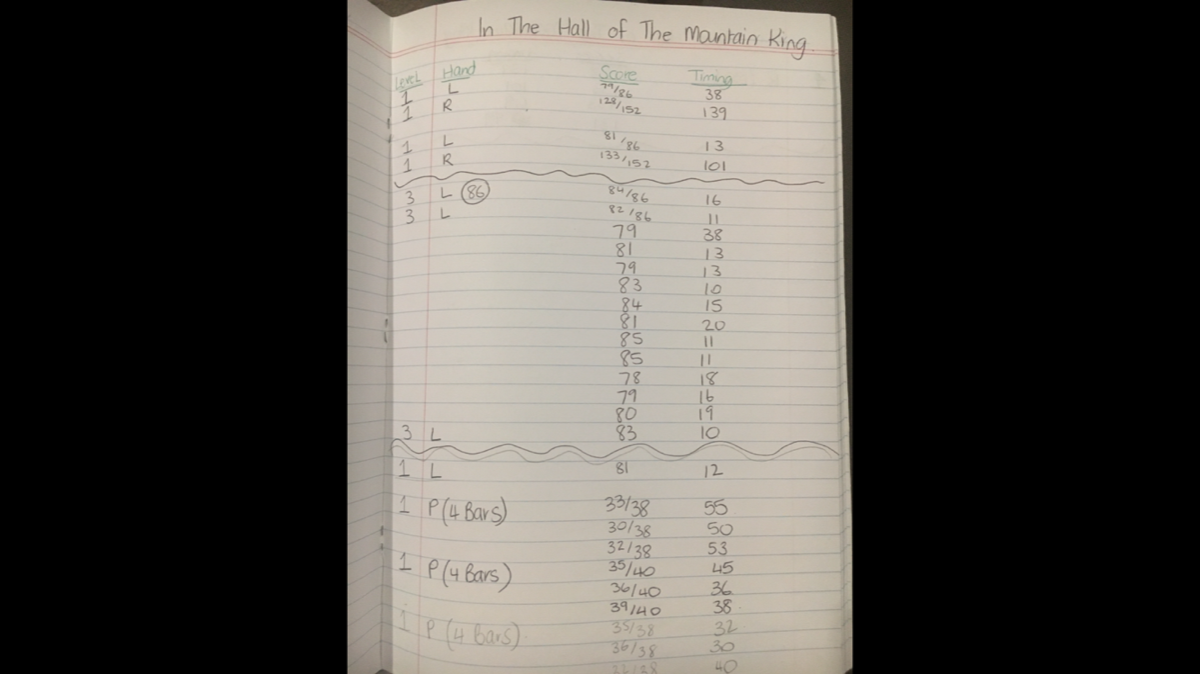 In The Hall of The Mountain King.
Level Hand Score Timing
1 L 79/86 38
1 R 128/152 139
1 L 81/86 13
1 R 133/152 101
3 L 86 84/86 16
3 L 82/86 11
79 38
81 13
79 13
83 10
84 15
81 20
85 11
85 11
78 18
79 16
80 19
3 L 83 10
1 L 81 12
1 P (4 Bars) 33/38 55
30/38 50
32/38 53
1 P (4 Bars) 35/40 45
36/40 36
39/40 38
1 P (4 Bars) 35/38 32
36/38 30
40